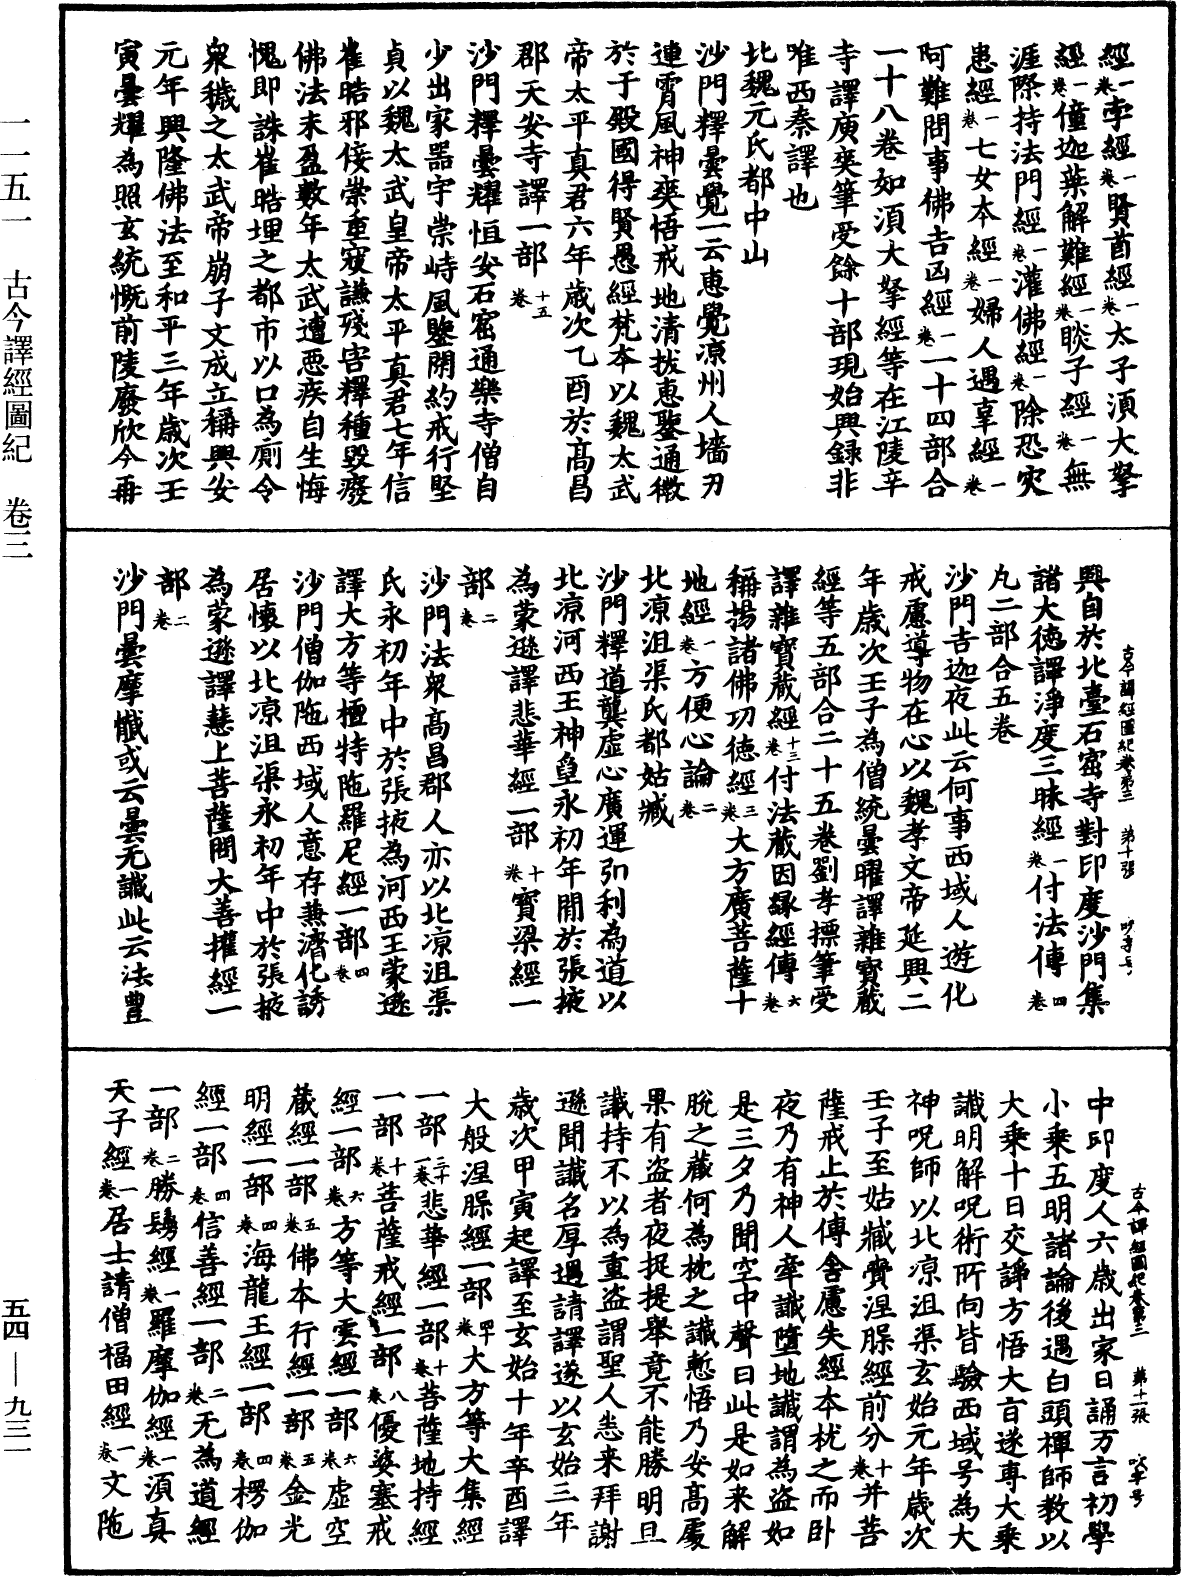 一一五一　古今譯經圖紀　卷三
經一卷孛經一卷賢首經一卷太子須大拏
經一卷僮迦葉解難經一卷睒子經一卷無
涯際持法門經一卷灌佛經一卷除恐灾
患經一卷七女本經一卷婦人遇辜經一卷
阿難問事佛吉凶經一卷一十四部合
一十八卷如須大拏經等在江陵辛
寺譯庾爽筆受餘十部現始興録非
唯西秦譯也
北魏元氏都中山
沙門釋曇覺一云惠覺凉州人墻刃
連霄風神爽悟戒地清拔惠鑒通微
於于殿國得賢愚經梵本以魏太武
帝太平真君六年歲次乙酉於高昌
郡天安寺譯一部十五卷
沙門釋曇耀恒安石窟通樂寺僧自
少出家器宇崇峙風鑒閑約戒行堅
貞以魏太武皇帝太平真君七年信
崔皓邪佞崇重寇謙殘害釋種毀廢
佛法未盈數年太武遭惡疾自生悔
愧即誅崔皓埋之都市以口為廁令
衆穢之太武帝崩子文成立稱興安
元年興隆佛法至和平三年歲次壬
寅曇耀為照玄統慨前陵廢欣今再
古今譯經圖紀卷第三　第十張
興自於北臺石窟寺對印度沙門集
諸大德譯淨度三昧經一卷付法傳四卷
凡二部合五卷
沙門吉迦夜此云何事西域人遊化
戒慮導物在心以魏孝文帝延興二
年歲次壬子為僧統曇曜譯雜寶藏
經等五部合二十五卷劉孝摽筆受
譯雜寶藏經十三卷付法藏因緣經傳六卷
稱揚諸佛功德經三卷大方廣菩薩十
地經一卷方便心論二卷
北凉沮渠氏都姑臧
沙門釋道龔虛心廣運弘利為道以
北凉河西王神璽永初年間於張掖
為蒙遜譯悲華經一部十卷寶梁經一
部二卷
沙門法衆高昌郡人亦以北凉沮渠
氏永初年中於張掖為河西王蒙遜
譯大方等檀特陁羅尼經一部四卷
沙門僧伽陁西域人意存兼濟化誘
居懷以北凉沮渠永初年中於張掖
為蒙遜譯慧上菩薩問大善權經一
部二卷
沙門曇摩懺或云曇无讖此云法豊
古今譯經圖紀卷第三　第十一張
中印度人六歲出家日誦万言初學
小乘五明諸論後遇白頭禪師教以
大乘十日交諍方悟大旨遂專大乘
讖明解呪術所向皆驗西域号為大
神呪師以北凉沮渠玄始元年歲次
壬子至姑臧賷涅槃經前分十卷并菩
薩戒上於傳舍慮失經本枕之而卧
夜乃有神人牽讖墮地讖謂為盜如
是三夕乃聞空中聲曰此是如来解
脫之藏何為枕之讖慙悟乃安高處
果有盜者夜捉提舉竟不能勝明旦
讖持不以為重盜謂聖人悉来拜謝
遜聞讖名厚遇請譯遂以玄始三年
歲次甲寅起譯至玄始十年辛酉譯
大般涅槃經一部四十卷大方等大集經
一部三十一卷悲華經一部十卷菩薩地持經
一部十卷菩薩戒經一部八卷優婆塞戒
經一部六卷方等大雲經一部六卷虛空
藏經一部五卷佛本行經一部五卷金光
明經一部四卷海龍王經一部四卷楞伽
經一部四卷信善經一部二卷无為道經
一部二卷勝鬘經一卷羅摩伽經一卷須真
天子經一卷居士請僧福田經一卷文陁
五四——九三一